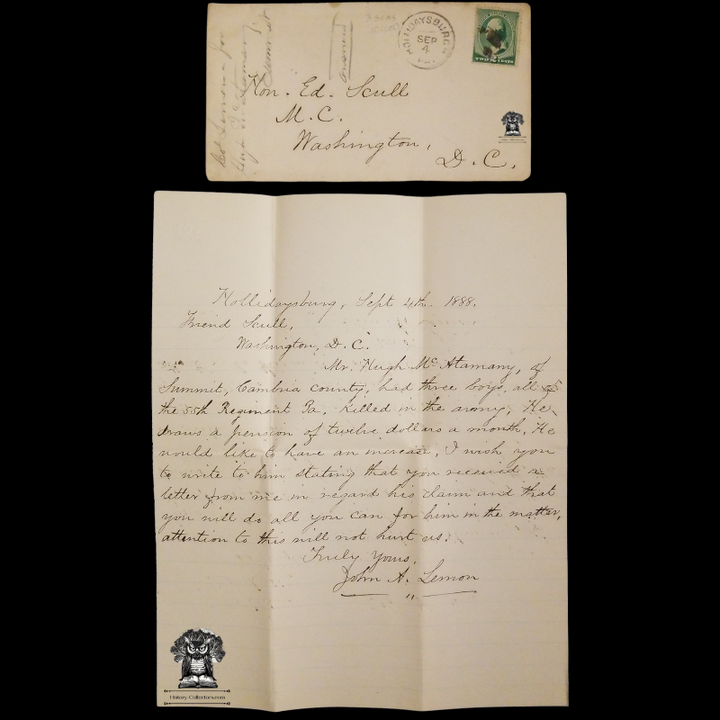 Hon. Ed. Scull
M. C.
Washington,
D. C.
HOLLIDAYSBURG
SEP
4
Answered
Hollidaysburg, Sept 4th. 1888.
Friend Scull,
Washington, D. C.
Mr. Hugh Mc Atamany, of
Summit, Cambria county, had three boys, all of
the 55th Regiment Pa. killed in the army, He
draws a pension of twelve dollars a month, He
would like to have an increase, I wish you
to write to him stating that you received a
letter from me in regard his claim and that
you will do all you can for him in the matter,
attention to this will not hurt us.
Truly Yours,
John A. Lemon
History-Collections.com